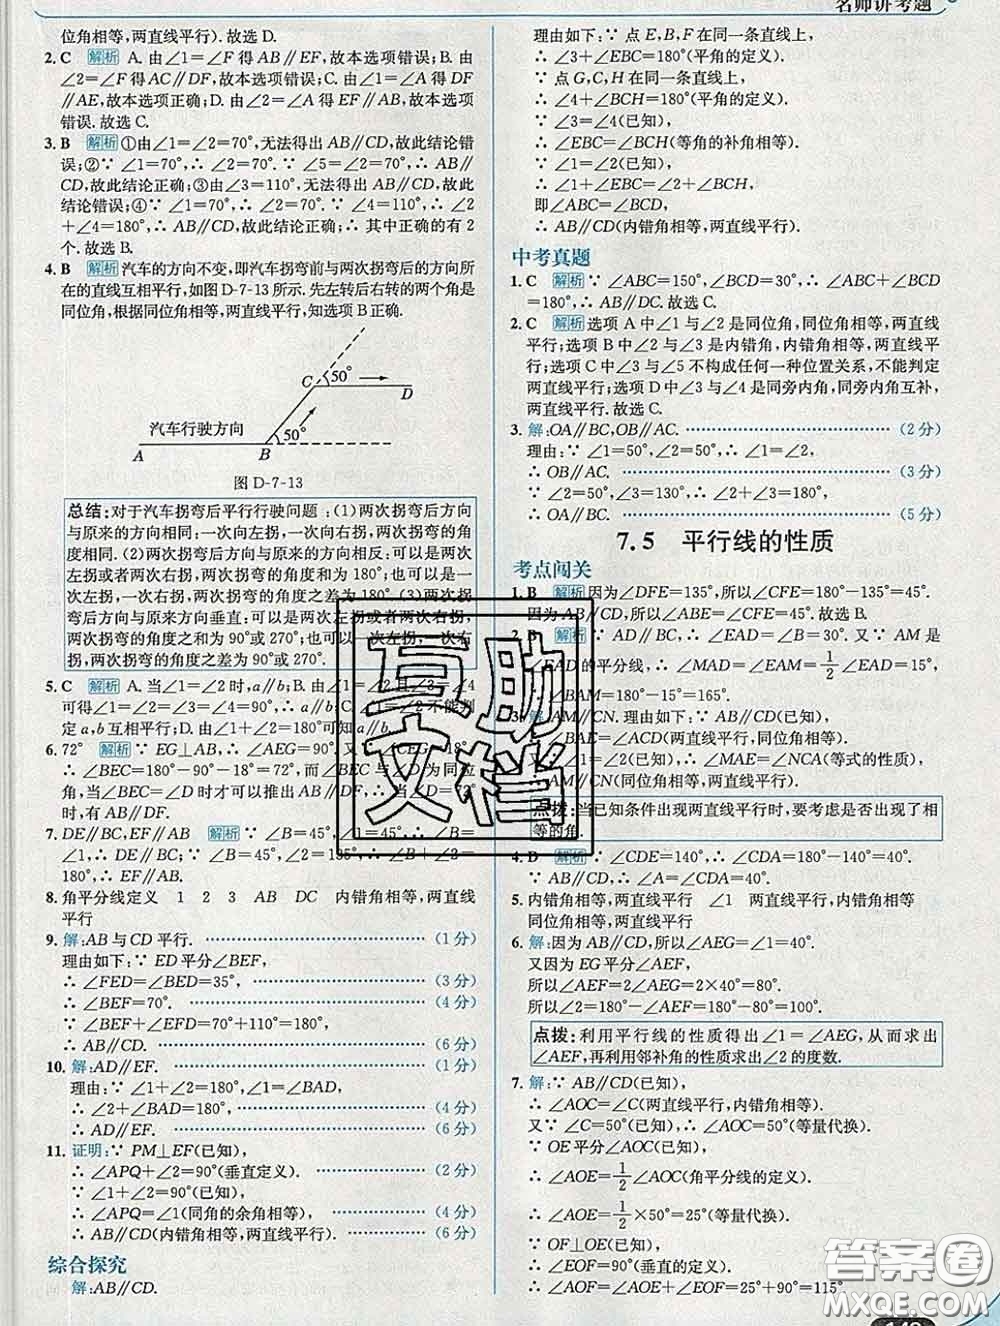 名师讲考题
位角相等,两直线平行).故选D.
2. C 解析 A.由∠1=∠F得AB∥EF,故本选项错误;B.由
∠2=∠F得AC∥DF,故本选项错误;C.由∠1=∠A得DF
∥AE,故本选项正确;D.由∠2=∠A得EF∥AB,故本选项
错误.故选C.
3. B 解析 ①由∠1=∠2=70°,无法得出AB∥CD,故此结论错
误;②∵ ∠1=70°,∴ ∠2=70°.∵ ∠5=∠2=70°,∴ AB∥
CD,故此结论正确;③由∠3=110°,无法得出AB∥CD,故此
结论错误;④∵ ∠1=70°,∴ ∠2=70°.∵ ∠4=110°,∴ ∠2
+∠4=180°,∴ AB∥CD,故此结论正确;其中正确的有2
个.故选B.
4. B 解析 汽车的方向不变,即汽车拐弯前与两次拐弯后的方向所
在的直线互相平行,如图D-7-13所示.先左转后右转的两个角是
同位角,根据同位角相等,两直线平行,知选项B正确.
C 50° D
汽车行驶方向 50°
A B
图 D-7-13
总结:对于汽车拐弯后平行行驶问题:(1)两次拐弯后方向
与原来的方向相同:一次向左拐,一次向右拐,两次拐弯的
角度相同.(2)两次拐弯后方向与原来的方向相反:可以是两
次左拐或者两次右拐,两次拐弯的角度和为180°;也可以是
一次左拐,一次右拐,两次拐弯的角度之差为180°.(3)两次拐
弯后方向与原来方向垂直:可以是两次左拐或者两次右拐,
两次拐弯的角度和为90°或270°;也可以一次左拐,一次右
拐,两次拐弯的角度之差为90°或270°.
5. C 解析 A.当∠1=∠2时,a∥b;B.由∠1=∠2且∠3=∠4
可得∠1=∠2=∠3=∠4=90°,∴ a∥b;C.∠1=∠2不能判
定a,b互相平行;D.由∠1+∠2=180°可知a∥b.
6. 72° 解析 ∵ EG⊥AB,∴ ∠AEG=90°.又∵ ∠CEG=18°,
∴ ∠BEC=180°-90°-18°=72°.∵ ∠BEC与∠D为同位
角,当∠BEC=∠D时才可以推出AB∥DF,∴ 当∠D=72°
时,有AB∥DF.
7. DE∥BC,EF∥AB 解析 ∵ ∠B=45°,∠1=45°,∴ ∠B=
∠1,∴ DE∥BC;∵ ∠B=45°,∠2=135°,∴ ∠B+∠2=
180°,∴ EF∥AB.
8. 角平分线定义 1 2 3 AB DC 内错角相等,两直线
平行
9. 解:AB与CD平行. (1分)
理由如下:∵ ED平分∠BEF,
∴ ∠FED=∠BED=35°, (3分)
∴ ∠BEF=70°. (4分)
∵ ∠BEF+∠EFD=70°+110°=180°,
∴ AB∥CD. (6分)
10. 解:AD∥EF. (1分)
理由:∵ ∠1+∠2=180°,∠1=∠BAD,
∴ ∠2+∠BAD=180°, (4分)
∴ AD∥EF. (6分)
11. 证明:∵ PM⊥EF(已知),
∴ ∠APQ+∠2=90°(垂直定义). (2分)
∵ ∠1+∠2=90°(已知),
∴ ∠APQ=∠1(同角的余角相等), (4分)
∴ AB∥CD(内错角相等,两直线平行). (6分)
综合探究
解:AB∥CD.
理由如下:∵ 点E,B,F在同一条直线上,
∴ ∠3+∠EBC=180°(平角的定义).
∵ 点G,C,H在同一条直线上,
∴ ∠4+∠BCH=180°(平角的定义).
∵ ∠3=∠4(已知),
∴ ∠EBC=∠BCH(等角的补角相等).
∵ ∠1=∠2(已知),
∴ ∠1+∠EBC=∠2+∠BCH,
即∠ABC=∠BCD,
∴ AB∥CD(内错角相等,两直线平行).
中考真题
1. C 解析 ∵ ∠ABC=150°,∠BCD=30°,∴ ∠ABC+∠BCD
=180°,∴ AB∥DC.故选C.
2. C 解析 选项A中∠1与∠2是同位角,同位角相等,两直线
平行;选项B中∠2与∠3是内错角,内错角相等,两直线平
行;选项C中∠3与∠5不构成任何一种位置关系,不能判定
两直线平行;选项D中∠3与∠4是同旁内角,同旁内角互补,
两直线平行.故选C.
3. 解:OA∥BC,OB∥AC. (2分)
理由:∵ ∠1=50°,∠2=50°,∴ ∠1=∠2,
∴ OB∥AC. (3分)
∵ ∠2=50°,∠3=130°,∴ ∠2+∠3=180°,
∴ OA∥BC. (5分)
7.5 平行线的性质
考点闯关
1. B 解析 因为∠DFE=135°,所以∠CFE=180°-135°=45°.
因为AB∥CD,所以∠ABE=∠CFE=45°.故选B.
2. B 解析 ∵ AD∥BC,∴ ∠EAD=∠B=30°.又∵ AM是
∠EAD的平分线,∴ ∠MAD=∠EAM=1/2∠EAD=15°,
∴ ∠BAM=180°-15°=165°.
3. 解:AM∥CN.理由如下:∵ AB∥CD(已知),
∴ ∠BAE=∠ACD(两直线平行,同位角相等).
∵ ∠1=∠2(已知),∴ ∠MAE=∠NCA(等式的性质),
∴ AM∥CN(同位角相等,两直线平行).
点拨:当已知条件出现两直线平行时,要考虑是否出现了相
等的角.
4. D 解析 ∵ ∠CDE=140°,∴ ∠CDA=180°-140°=40°.
∵ AB∥CD,∴ ∠A=∠CDA=40°.
5. 内错角相等,两直线平行 ∠1 两直线平行,内错角相等
同位角相等,两直线平行
6. 解:因为AB∥CD,所以∠AEG=∠1=40°.
又因为EG平分∠AEF,
所以∠AEF=2∠AEG=2×40°=80°.
所以∠2=180°-∠AEF=180°-80°=100°.
点拨:利用平行线的性质得出∠1=∠AEG,从而求出
∠AEF,再利用邻补角的性质求出∠2的度数.
7. 解:∵ AB∥CD(已知),
∴ ∠AOC=∠C(两直线平行,内错角相等).
又∵ ∠C=50°(已知),∴ ∠AOC=50°(等量代换).
∵ OE平分∠AOC(已知),
∴ ∠AOE=1/2∠AOC(角平分线的定义),
∴ ∠AOE=1/2×50°=25°(等量代换).
∵ OF⊥OE(已知),
∴ ∠EOF=90°(垂直的定义),
∴ ∠AOF=∠AOE+∠EOF=25°+90°=115°
互助
文档
答案圈
MXQE.COM